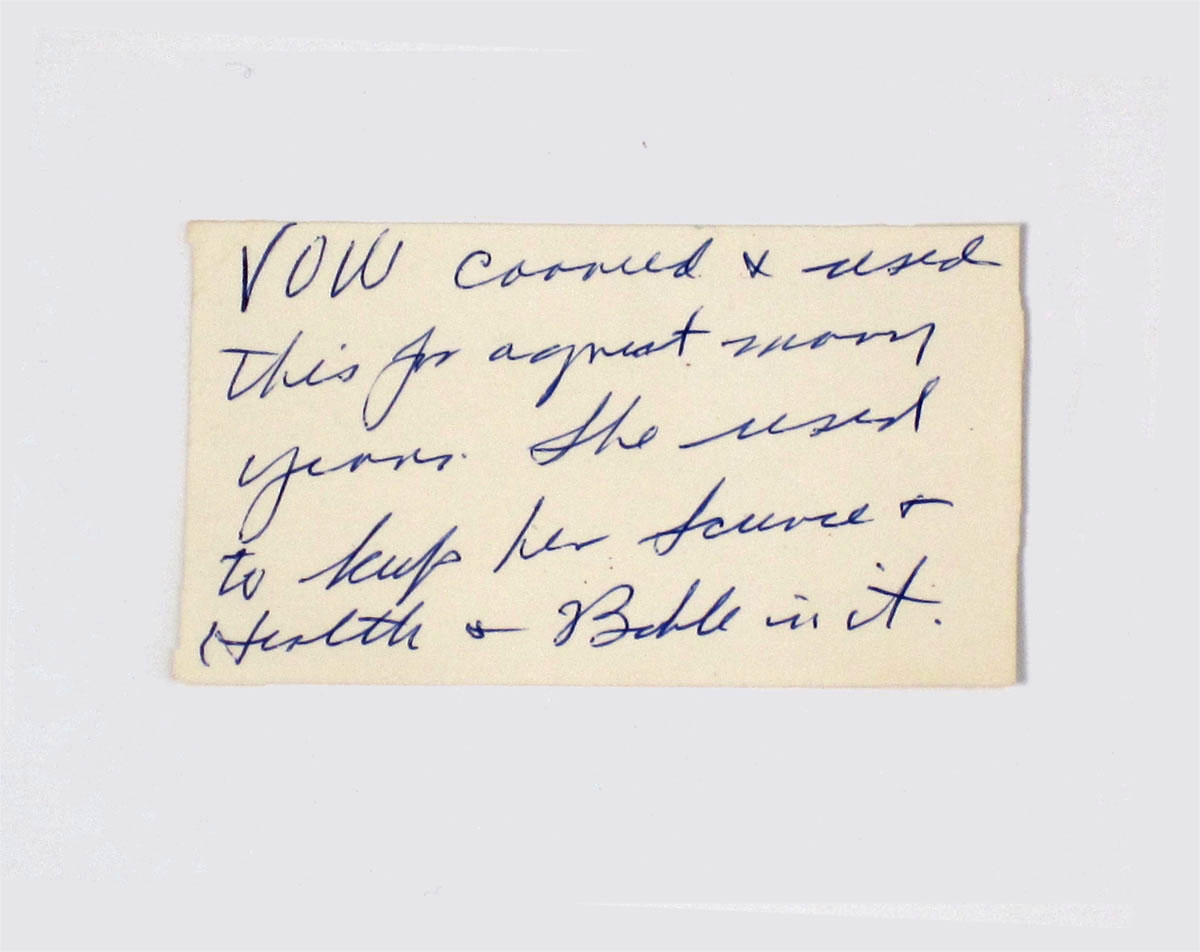 VOW carried & used
this for a great many
years. She used
to keep her Science &
Health & Bible in it.